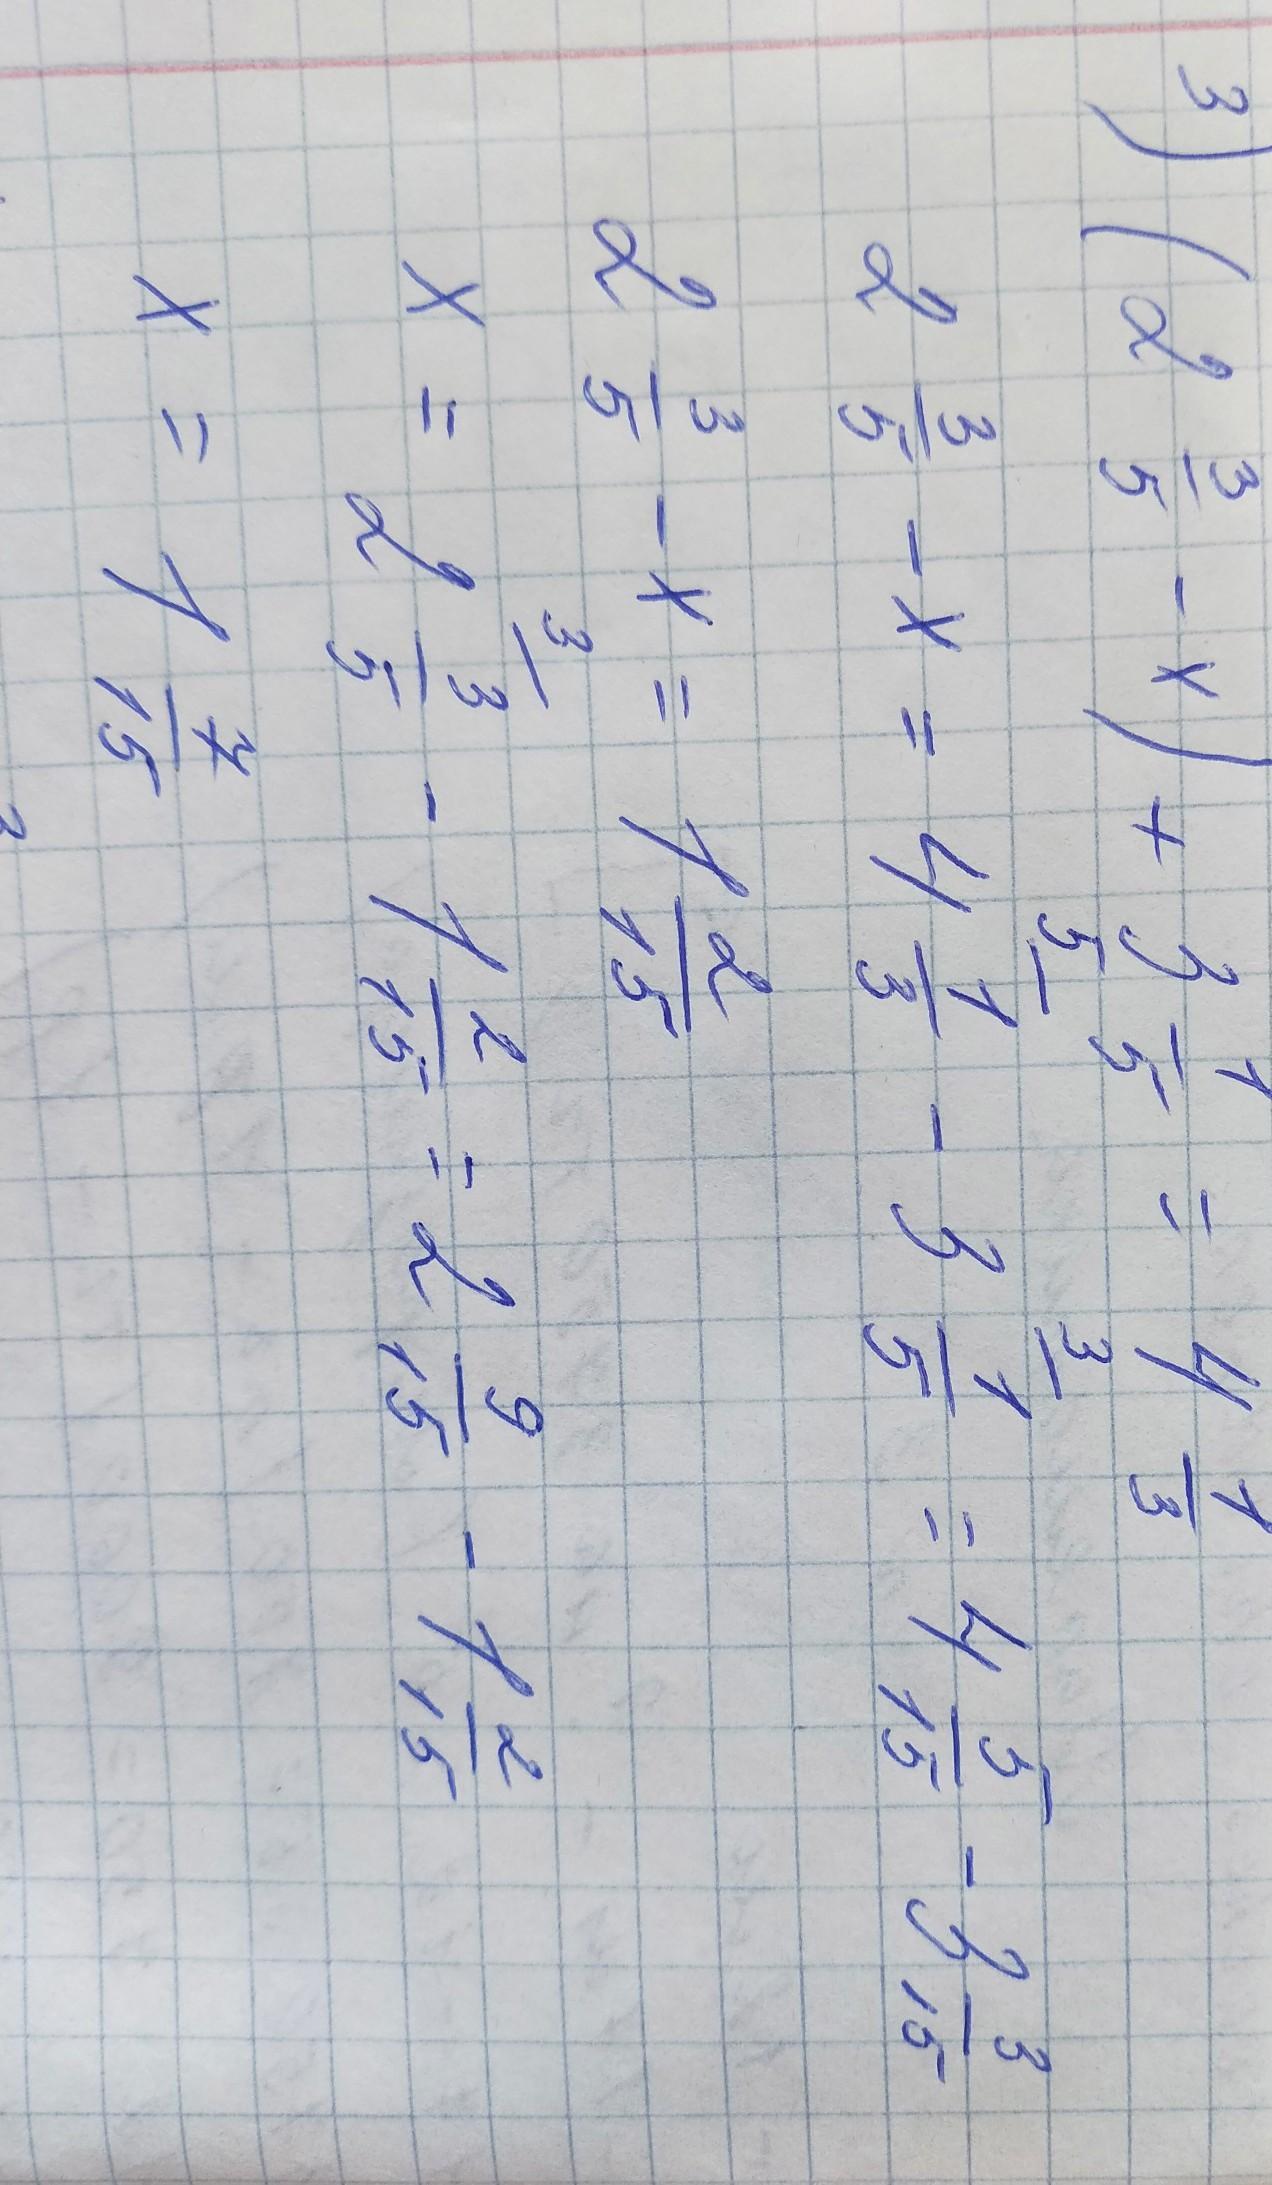 3) (2 3/5 - x) + 3 1/5 = 4 1/3
2 3/5 - x = 4 1/3 (5 - 3 1/5 (3 = 4 5/15 - 3 3/15
2 3/5 - x = 1 2/15
x = 2 3/5 (3 - 1 2/15 = 2 9/15 - 1 2/15
x = 1 7/15